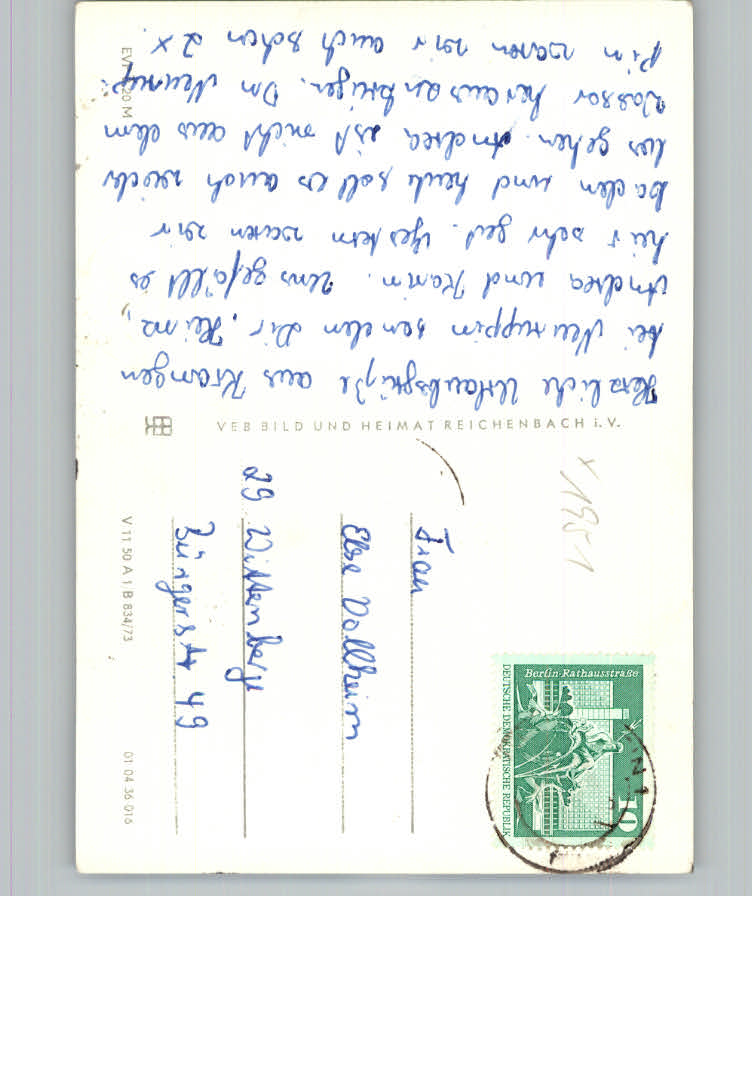 Herzliche Urlaubsgrüße aus Krangen
bei Neuruppin senden Dir, Heinz,
Andrea und Karin. Uns gefällt es
hier sehr gut. Gestern waren wir
baden und heute soll es auch wieder
los gehen. Andrea ist nicht aus dem
Wasser herauszubringen. In Neurup-
pin waren wir auch schon 2x
EVP 0,20 M
VEB BILD UND HEIMAT REICHENBACH i. V.
V 11 50 A 1 B 834/73
01 04 36 016
Y 1951
Berlin-Rathausstraße
DEUTSCHE DEMOKRATISCHE REPUBLIK
10
Frau
Else Vollheim
29 Wittenberge
Bürgerstr 49